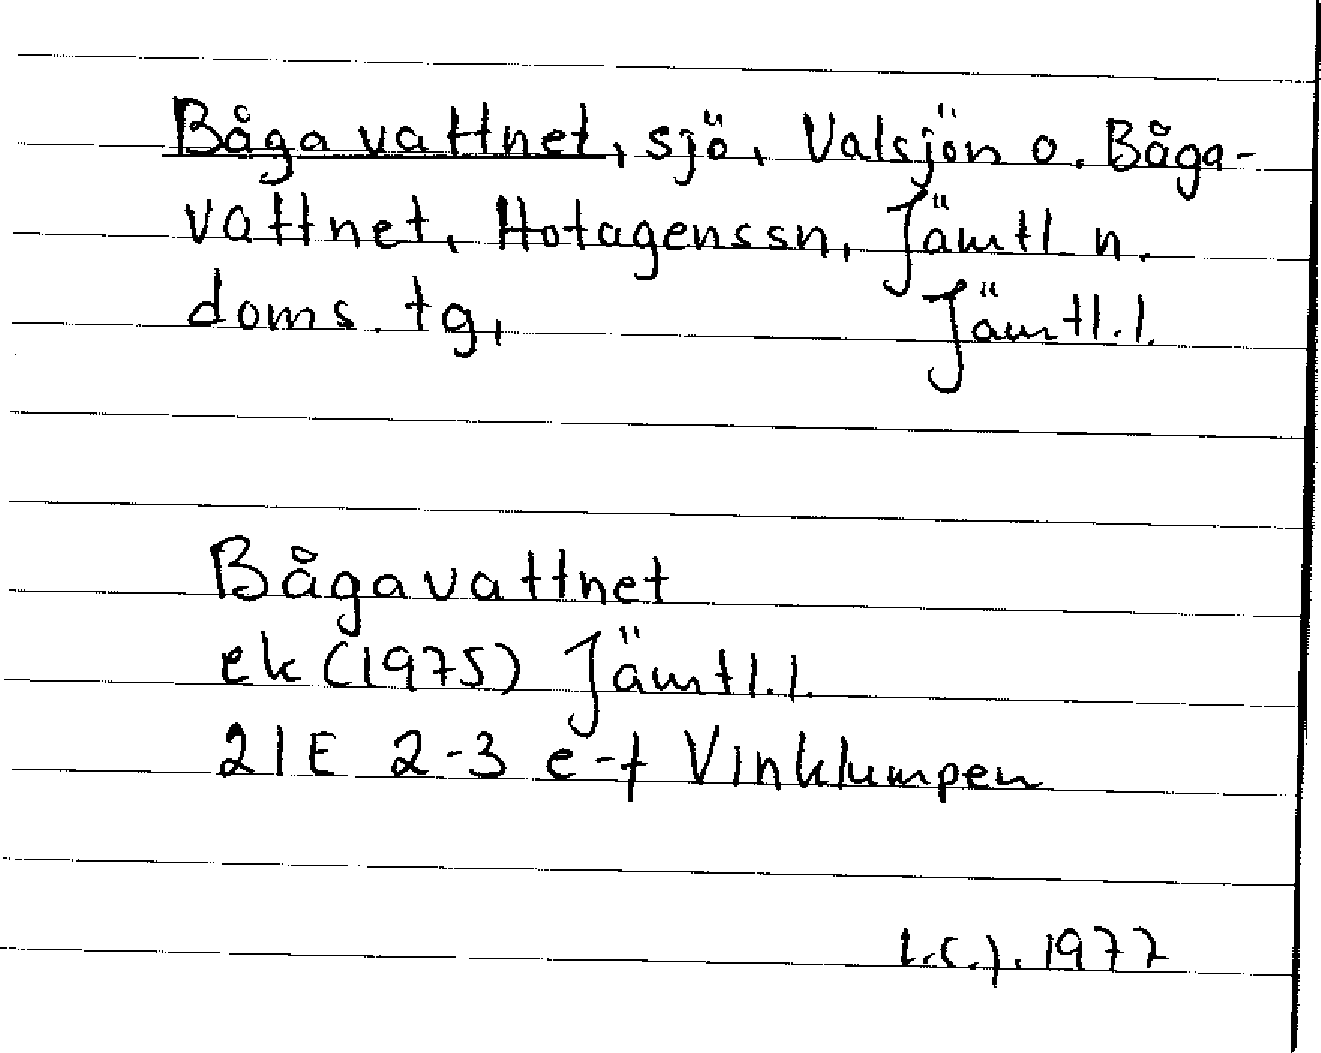 Bågavattnet, sjö, Valsjön o. Båga-
vattnet, Hotagenssn, Jämtl n.
doms. tg, Jämtl.l.
Bågavattnet
ek (1975) Jämtl.l.
21E 2-3 e-f Vinklumpen
1977